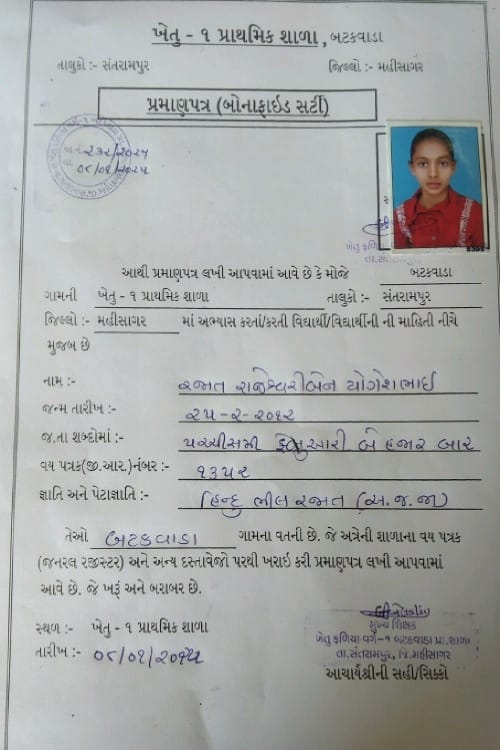 ખેતુ - ૧ પ્રાથમિક શાળા, બટકવાડા
તાલુકો :- સંતરામપુર જિલ્લો :- મહીસાગર
પ્રમાણપત્ર (બોનાફાઇડ સર્ટી)
આથી પ્રમાણપત્ર લખી આપવામાં આવે છે કે મોજે બટકવાડા
ગામની ખેતુ - ૧ પ્રાથમિક શાળા તાલુકો :- સંતરામપુર
જિલ્લો :- મહીસાગર માં અભ્યાસ કરતાં/કરતી વિદ્યાર્થી/વિદ્યાર્થીની ની માહિતી નીચે
મુજબ છે
નામ :- રજાત રાજેશ્વરીબેન યોગેશભાઈ
જન્મ તારીખ :- ૨૫-૨-૨૦૧૨
જ.તા શબ્દોમાં :- પચ્ચીસમી ફેબ્રુઆરી બે હજાર બાર
વય પત્રક(જી.આર.)નંબર :- ૧૩૫૨
જ્ઞાતિ અને પેટાજ્ઞાતિ :- હિન્દુ ભીલ રજાત (અ.જ.જા)
તેઓ બટકવાડા ગામના વતની છે. જે અત્રેની શાળાના વય પત્રક
(જનરલ રજીસ્ટર) અને અન્ય દસ્તાવેજો પરથી ખરાઇ કરી પ્રમાણપત્ર લખી આપવામાં
આવે છે. જે ખરૂં અને બરાબર છે.
સ્થળ :- ખેતુ - ૧ પ્રાથમિક શાળા
મુખ્ય શિક્ષક
ખેતુ ફળિયા વર્ગ-૧ બટકવાડા પ્રા.શાળા
તારીખ :- ૦૮/૦૧/૨૦૨૫
તા.સંતરામપુર, જિ.મહીસાગર
આચાર્યશ્રીની સહી/સિક્કો